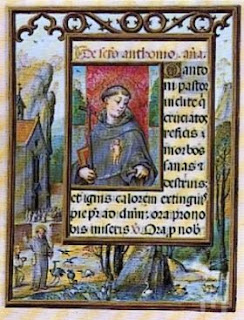 De scto anthonio. aña.
Anto
ni pastor
inclite q
cruciatos
reficis ⁊
morbos
sanas ⁊
destruis
et ignis calorem extinguis
pie pr ad dnm: ora pro no
bis miseris ℣ Ora p nob